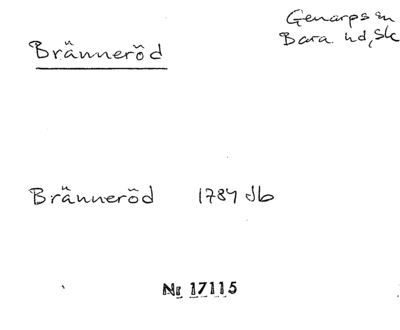 Genarps sn
Bara hd, Sk
Bränneröd
Bränneröd 1784 db
Nr 17115